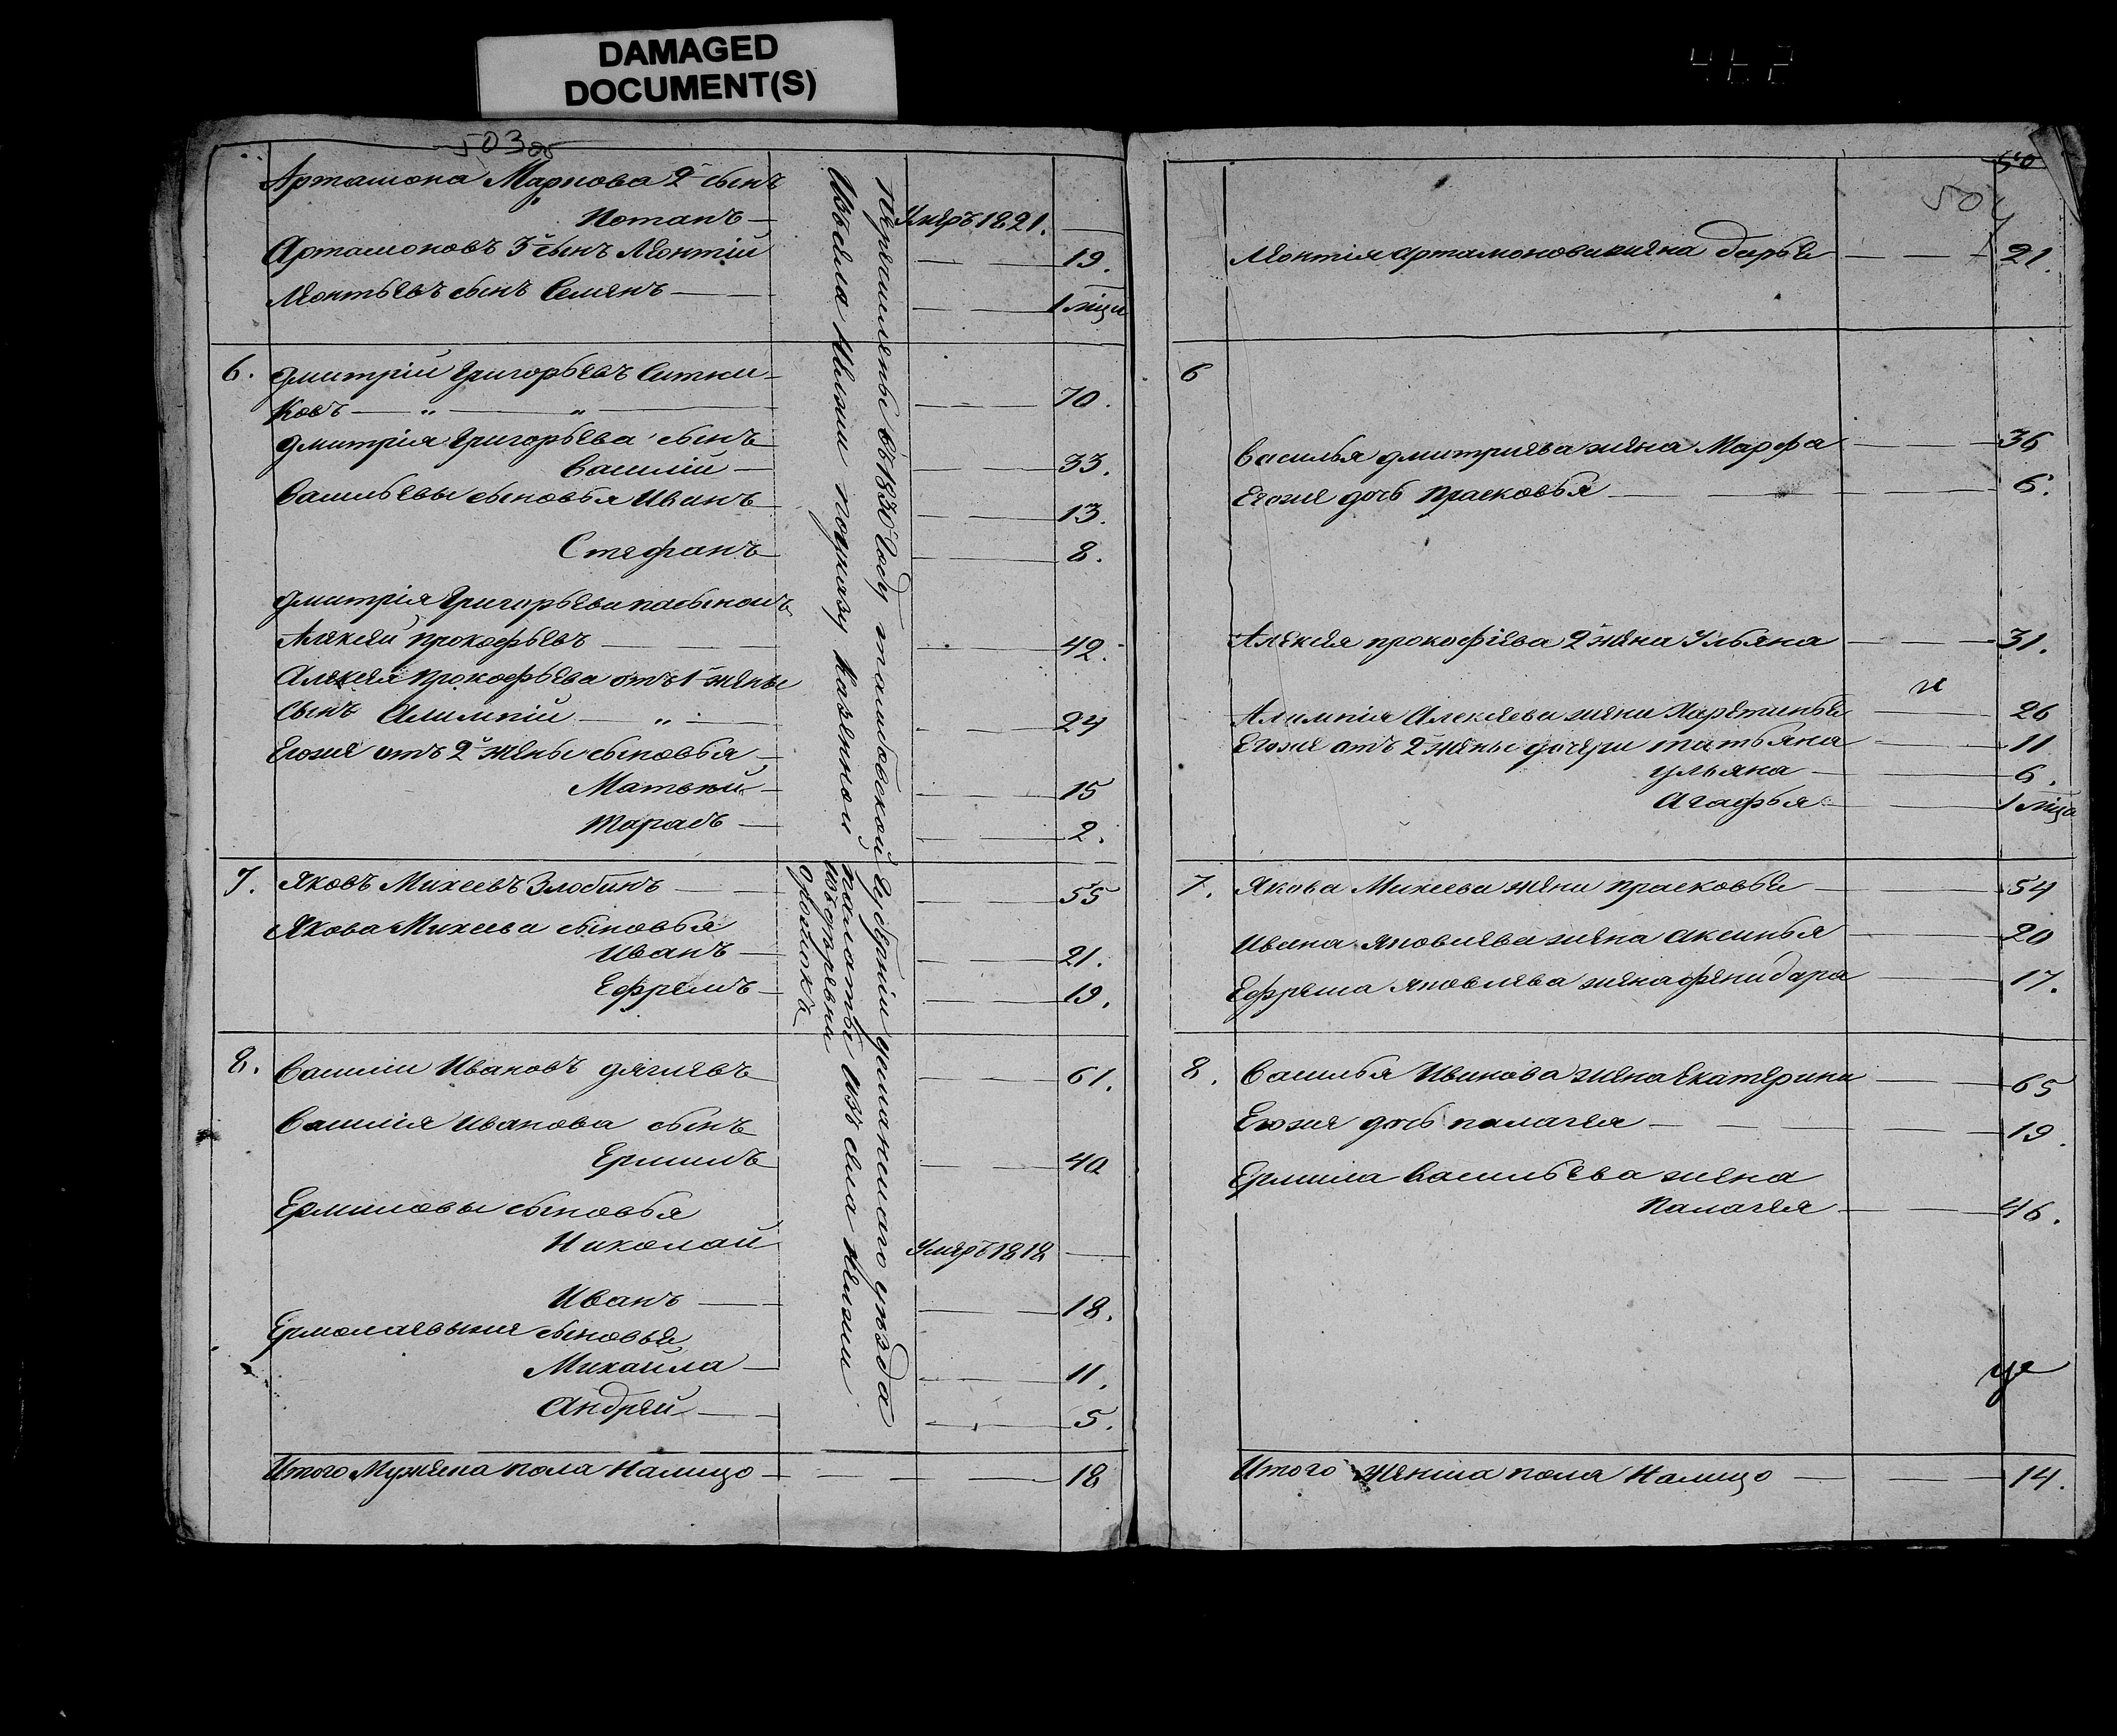 DAMAGED
DOCUMENT(S)
462
503 об
Артамона Маркова 2й сынъ
Потапъ — Умеръ 1821. —
Артамоновъ 3й сынъ Леонтій — — 19.
Леонтьевъ сынъ Семенъ — — 1 мца
6. Дмитрій Григорьевъ Ситни-
ковъ — „ — „ — — — 70.
Дмитрія Григорьева сынъ
Василій — — — 33.
Васильевы сыновья Иванъ — — 13.
Стефанъ — — 8.
Дмитрія Григорьева пасынокъ
Алексей Прокофьевъ — — 42.
Алексея Прокофьева отъ 1й жены
сынъ Алимпій — „ — — — 24
Егоже отъ 2й жены сыновья —
Матвей — — — 15
Тарасъ — — — 2.
7. Яковъ Михеевъ Злобинъ — — 55
Якова Михеева сыновья
Иванъ — — — 21.
Ефремъ — — — 19.
8. Василій Ивановъ Дягилевъ — — 61.
Василія Иванова сынъ
Ермилъ — — 40
Ермиловы сыновья
Николай Умеръ 1818 —
Иванъ — — — 18.
Ермолаевы же сыновья
Михайла — — 11.
Андрей — — 5.
Итого Мужеска пола Налицо — — — 18
Перечислены въ 1830 Году Тамбовской Губерніи усманскаго уезда
Изъ села Излегощи по указу Казенной палаты изъ села
изъ деревни
50
504
Леонтія Артамонова жена Дарья — — — 21.
6
Василья Дмитриева жена Марфа — — 36
Егоже дочь Прасковья — — — 6.
Алексея Прокофіева 2я жена Ульяна — — 31.
Алимпія Алексеева жена Харетинья — 26
Егоже отъ 2й жены дочери Татьяна — — 11
Ульяна — — 6.
Агафья — — 1 мца
7. Якова Михеева жена Прасковья — — 54
Ивана Яковлева жена Аксинья — — 20
Ефрема Яковлева жена Фенидора — — 17.
8. Василья Иванова жена Екатерина — — 65
Егоже дочь Палагея — — — 19.
Ермила Васильева жена
Палагея — — 46.
Итого Женска пола Налицо — — — 14.